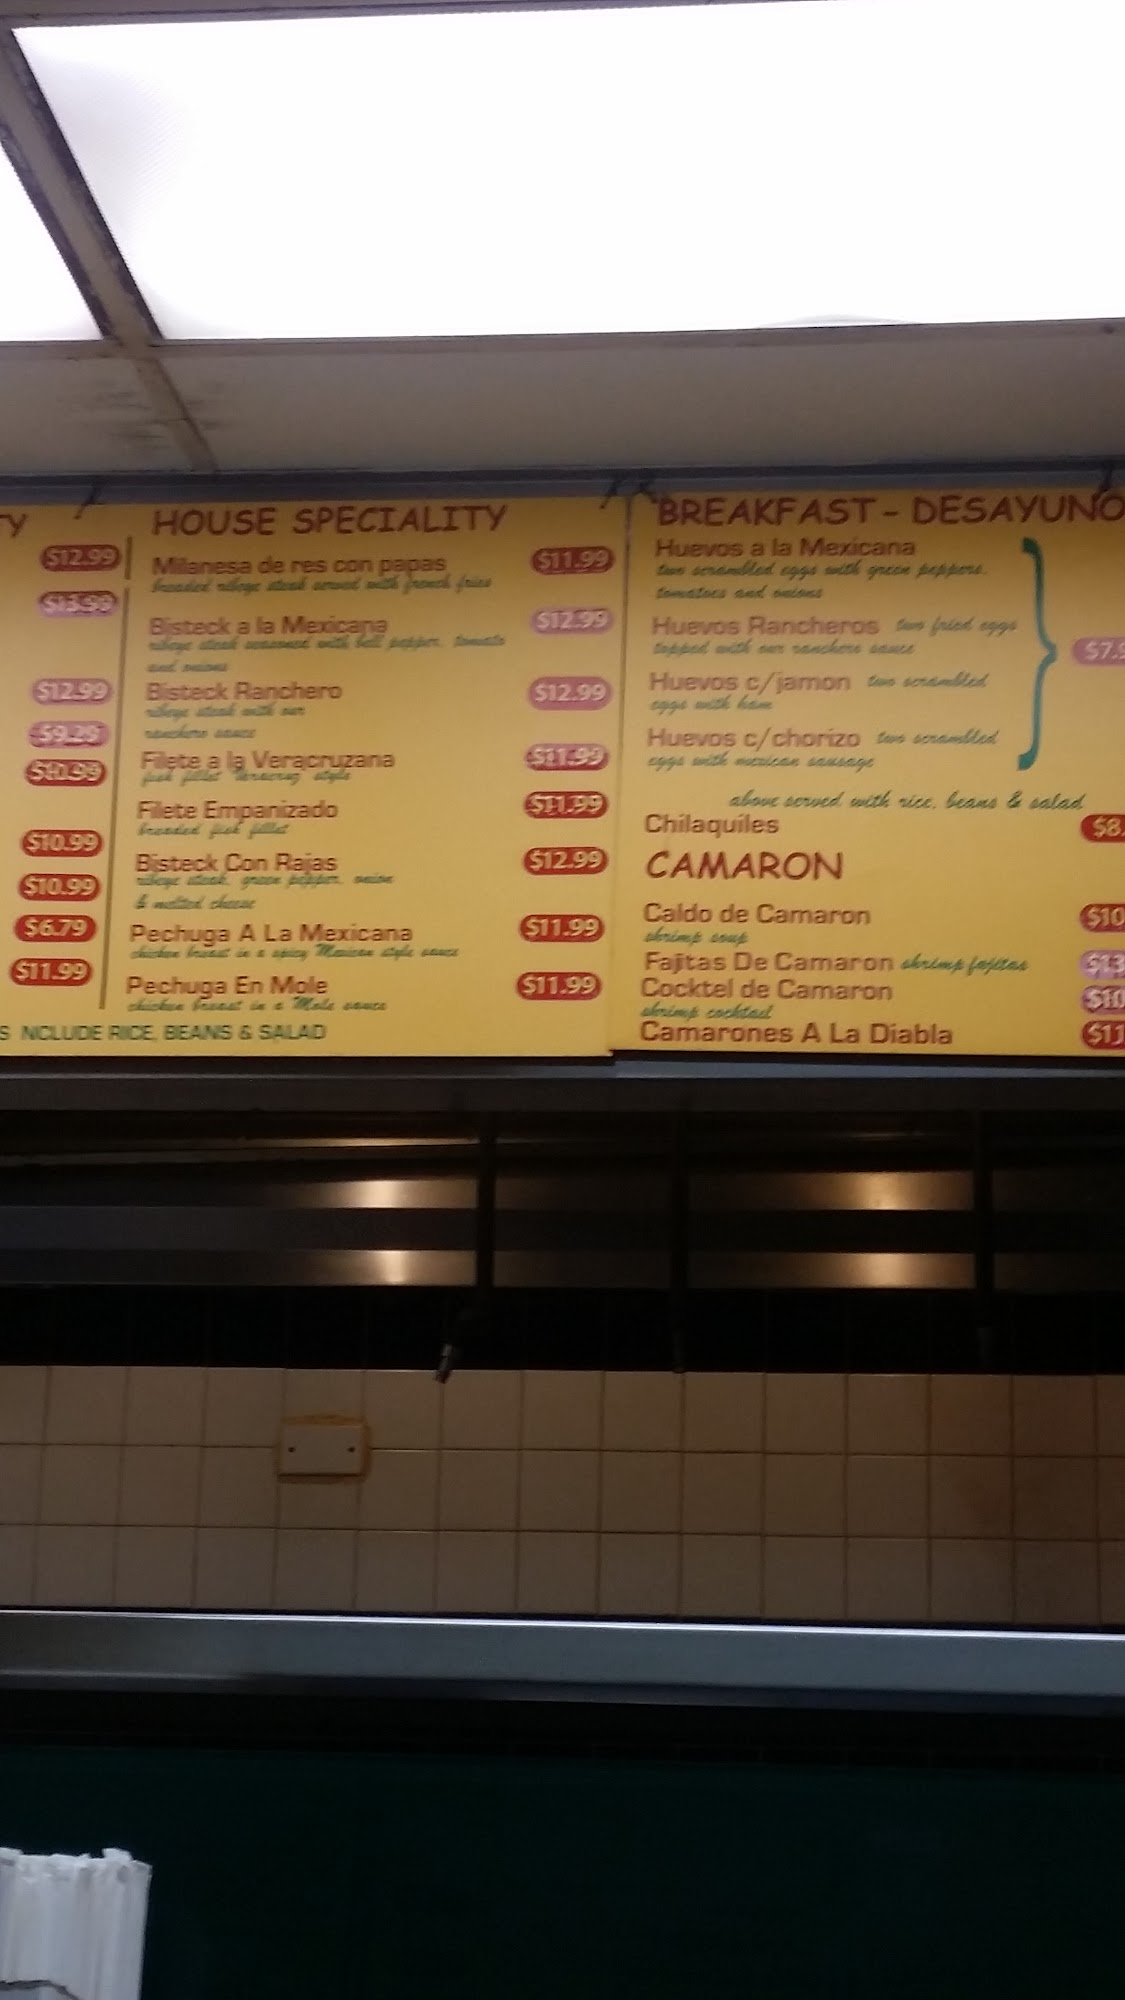 TY
$12.99
$13.99
$12.99
$9.29
$10.99
$10.99
$10.99
$6.79
$11.99
HOUSE SPECIALITY
Milanesa de res con papas $11.99
breaded ribeye steak served with french fries
Bisteck a la Mexicana $12.99
ribeye steak seasoned with bell pepper, tomato
and onions
Bisteck Ranchero $12.99
ribeye steak with our
ranchero sauce
Filete a la Veracruzana $11.99
fish fillet "Veracruz" style
Filete Empanizado $11.99
breaded fish fillet
Bisteck Con Rajas $12.99
ribeye steak, green pepper, onion
& melted cheese
Pechuga A La Mexicana $11.99
chicken breast in a spicy Mexican style sauce
Pechuga En Mole $11.99
chicken breast in a Mole sauce
S NCLUDE RICE, BEANS & SALAD
BREAKFAST - DESAYUNO
Huevos a la Mexicana
two scrambled eggs with green peppers,
tomatoes and onions
Huevos Rancheros two fried eggs
topped with our ranchero sauce
$7.9
Huevos c/jamon two scrambled
eggs with ham
Huevos c/chorizo two scrambled
eggs with mexican sausage
above served with rice, beans & salad
Chilaquiles $8.
CAMARON
Caldo de Camaron $10
shrimp soup
Fajitas De Camaron shrimp fajitas $13
Cocktel de Camaron $10
shrimp cocktail
Camarones A La Diabla $11